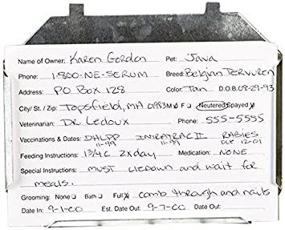 Name of Owner: Karen Gordon Pet: Java
Phone: 1-800-NE-SERUM Breed: Belgian Tervuren
Address: PO Box 128 Color: Tan D.O.B. 08-29-93
City/ St. / Zip: Topsfield, MA 01983 M F Neutered Spayed
Veterinarian: Dr Ledoux Phone: 555-5555
Vaccinations & Dates: DHLPP INTRATRAC II RABIES
11-99 11-99 DUE 12-01
Feeding Instructions: 1 3/4 C 2x day Medication: NONE
Special Instructions: must lie down and wait for
meals.
Grooming: None Bath Full comb through and nails
Date In: 9-1-00 Est. Date Out: 9-7-00 Date Out: